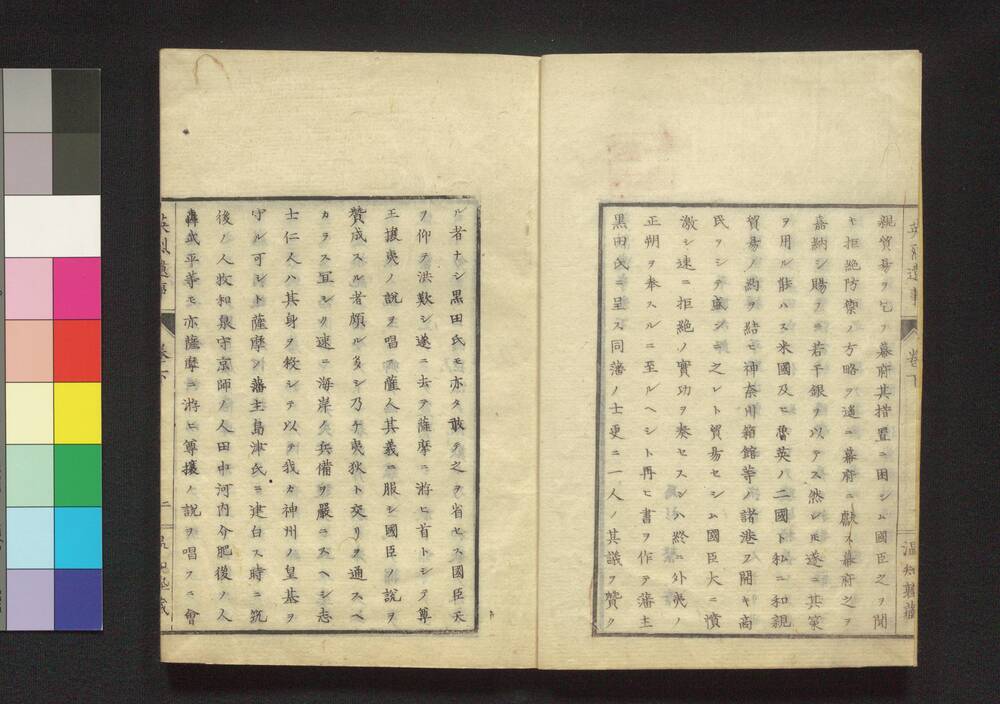 親貿易ヲ乞フ幕府其措置ニ困シム國臣之ヲ聞
キ拒絶防禦ノ方略ヲ進ニ幕府ニ獻ス幕府之ヲ
嘉納シ賜フニ若干銀ヲ以テス然シ𪜈遂ニ其策
ヲ用ル能ハス米國及ヒ魯英ノ二國ト私ニ和親
貿易ノ約ヲ結ヒ神奈川箱館等ノ諸港ヲ開キ商
民ヲシテ盛ンニ之レト貿易セシム國臣大ニ憤
激シ速ニ拒絶ノ實功ヲ奏セスンハ終ニ外夷ノ
正朔ヲ奉スルニ至ルヘシト再ヒ書ヲ作テ藩主
黒田氏ニ呈ス同藩ノ士更ニ一人ノ其議ヲ賛ク
卷下
温知藏
ル者ナシ黒田氏モ亦タ敢テ之ヲ省セス國臣天
ヲ仰テ洪歎シ遂ニ去テ薩摩ニ游ヒ首トシテ尊
王攘夷ノ說ヲ唱フ薩人其義ニ服シ國臣ノ說ヲ
賛成スル者頗ル多シ乃チ夷狄ト交リヲ通スヘ
カラス宜シク速ニ海岸ノ兵備ヲ嚴ニスヘシ志
士仁人ハ其身ヲ殺シテ以テ我カ神州ノ皇基ヲ
守ル可シト薩摩ノ藩主島津氏ニ建白ス時ニ筑
後ノ人牧和泉守京師ノ人田中河内介肥後ノ人
轟武平等モ亦薩摩ニ游ヒ尊攘ノ說ヲ唱フニ會
卷下
二